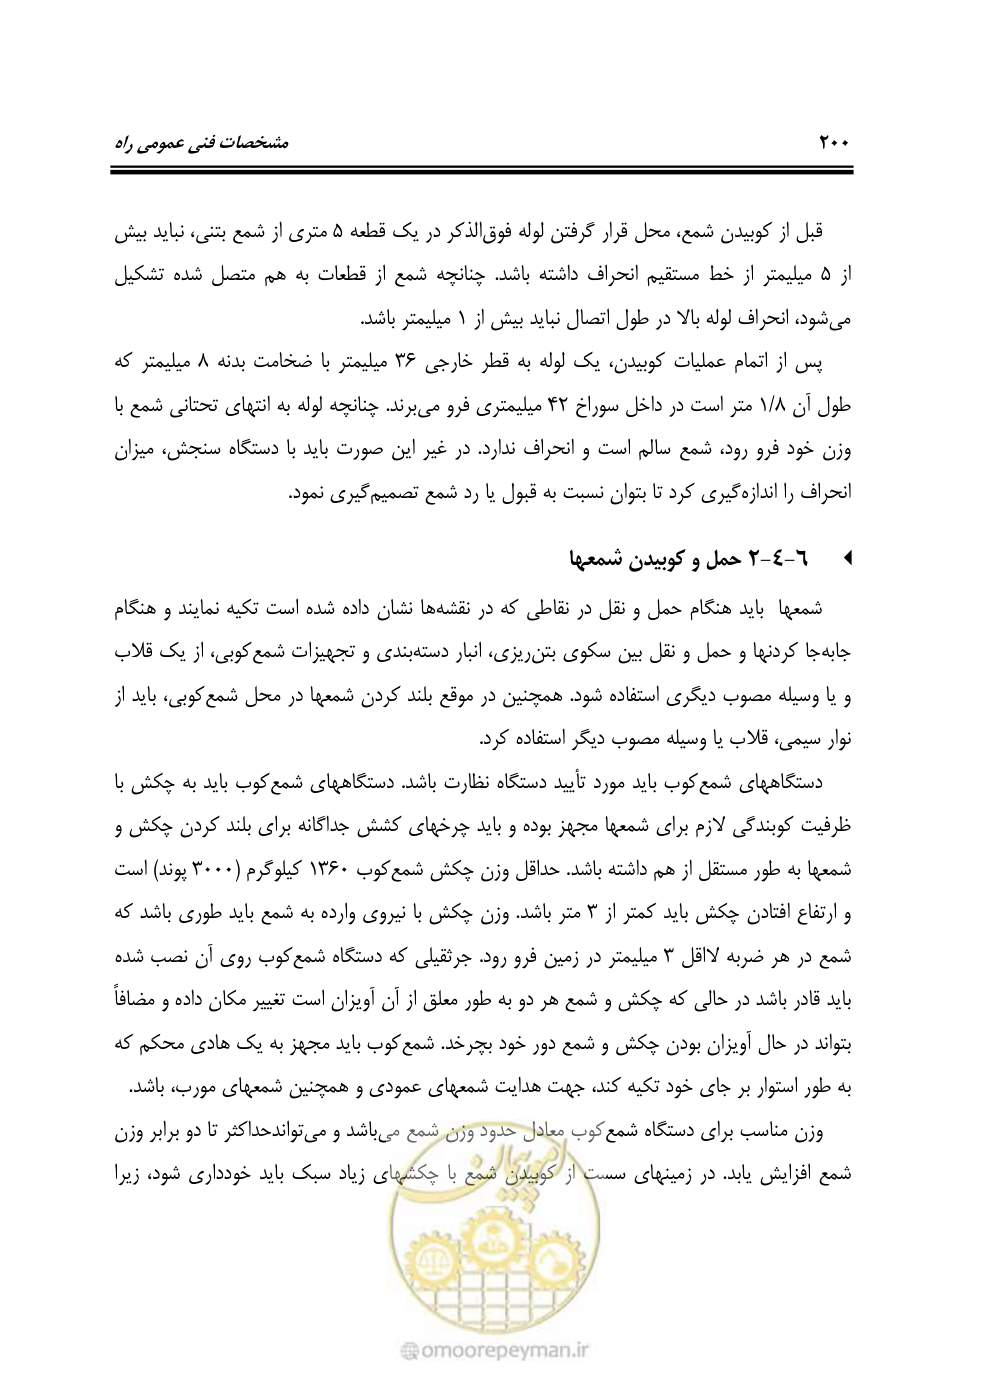 ۲۰۰ مشخصات فنی عمومی راه
قبل از کوبیدن شمع، محل قرار گرفتن لوله فوق‌الذکر در یک قطعه ۵ متری از شمع بتنی، نباید بیش
از ۵ میلیمتر از خط مستقیم انحراف داشته باشد. چنانچه شمع از قطعات به هم متصل شده تشکیل
می‌شود، انحراف لوله بالا در طول اتصال نباید بیش از ۱ میلیمتر باشد.
پس از اتمام عملیات کوبیدن، یک لوله به قطر خارجی ۳۶ میلیمتر با ضخامت بدنه ۸ میلیمتر که
طول آن ۱/۸ متر است در داخل سوراخ ۴۲ میلیمتری فرو می‌برند. چنانچه لوله به انتهای تحتانی شمع با
وزن خود فرو رود، شمع سالم است و انحراف ندارد. در غیر این صورت باید با دستگاه سنجش، میزان
انحراف را اندازه‌گیری کرد تا بتوان نسبت به قبول یا رد شمع تصمیم‌گیری نمود.
۶-۴-۲ حمل و کوبیدن شمعها
شمعها باید هنگام حمل و نقل در نقاطی که در نقشه‌ها نشان داده شده است تکیه نمایند و هنگام
جابه‌جا کردنها و حمل و نقل بین سکوی بتن‌ریزی، انبار دسته‌بندی و تجهیزات شمع‌کوبی، از یک قلاب
و یا وسیله مصوب دیگری استفاده شود. همچنین در موقع بلند کردن شمعها در محل شمع‌کوبی، باید از
نوار سیمی، قلاب یا وسیله مصوب دیگر استفاده کرد.
دستگاههای شمع‌کوب باید مورد تأیید دستگاه نظارت باشد. دستگاههای شمع‌کوب باید به چکش با
ظرفیت کوبندگی لازم برای شمعها مجهز بوده و باید چرخهای کشش جداگانه برای بلند کردن چکش و
شمعها به طور مستقل از هم داشته باشد. حداقل وزن چکش شمع‌کوب ۱۳۶۰ کیلوگرم (۳۰۰۰ پوند) است
و ارتفاع افتادن چکش باید کمتر از ۳ متر باشد. وزن چکش با نیروی وارده به شمع باید طوری باشد که
شمع در هر ضربه لااقل ۳ میلیمتر در زمین فرو رود. جرثقیلی که دستگاه شمع‌کوب روی آن نصب شده
باید قادر باشد در حالی که چکش و شمع هر دو به طور معلق از آن آویزان است تغییر مکان داده و مضافاً
بتواند در حال آویزان بودن چکش و شمع دور خود بچرخد. شمع‌کوب باید مجهز به یک هادی محکم که
به طور استوار بر جای خود تکیه کند، جهت هدایت شمعهای عمودی و همچنین شمعهای مورب، باشد.
وزن مناسب برای دستگاه شمع‌کوب معادل حدود وزن شمع می‌باشد و می‌تواندحداکثر تا دو برابر وزن
شمع افزایش یابد. در زمینهای سست از کوبیدن شمع با چکشهای زیاد سبک باید خودداری شود، زیرا
امور پیمان
@omoorepeyman.ir